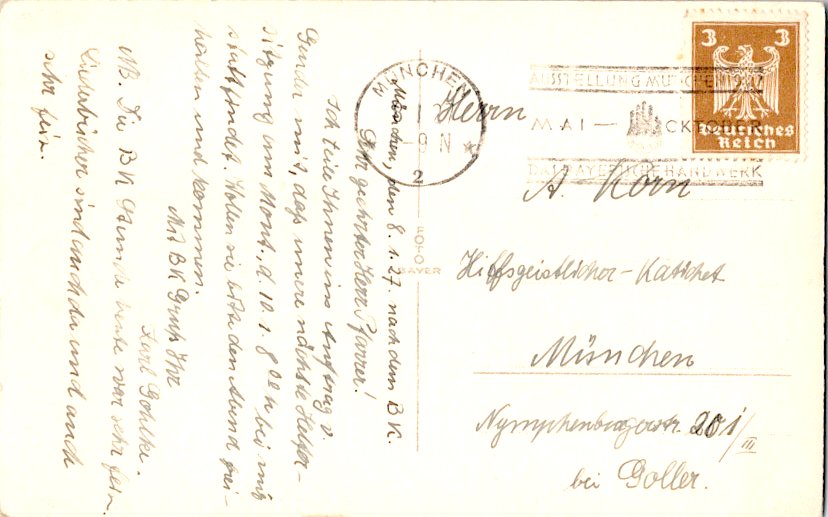 München, den 8.1.27. nach dem B.K.
Sehr geehrter Herr Pfarrer!
Ich teile Ihnen im Auftrag v.
Gunda mit, daß unsere nächste Helfer-
sitzung am Mont., d. 10.1. 8 00 h bei mir
stattfindet. Wollen sie bitte den Abend frei-
halten und kommen.
Mit BK Gruß Ihr
Karl Gohlke.
NB. Die BK Stunde heute war sehr fein.
Liederbücher sind auch da und auch
sehr fein.
MÜNCHEN
1
8-9 N
2
AUSSTELLUNG MÜNCHEN 1927
MAI — OCKTOBER
DAS BAYERISCHE HANDWERK
3 3
Deutsches
Reich
FOTO
BAYER
Herrn
A. Korn
Hilfsgeistlicher - Katichet
München
Nymphenburgerstr. 201/III
bei Goller.